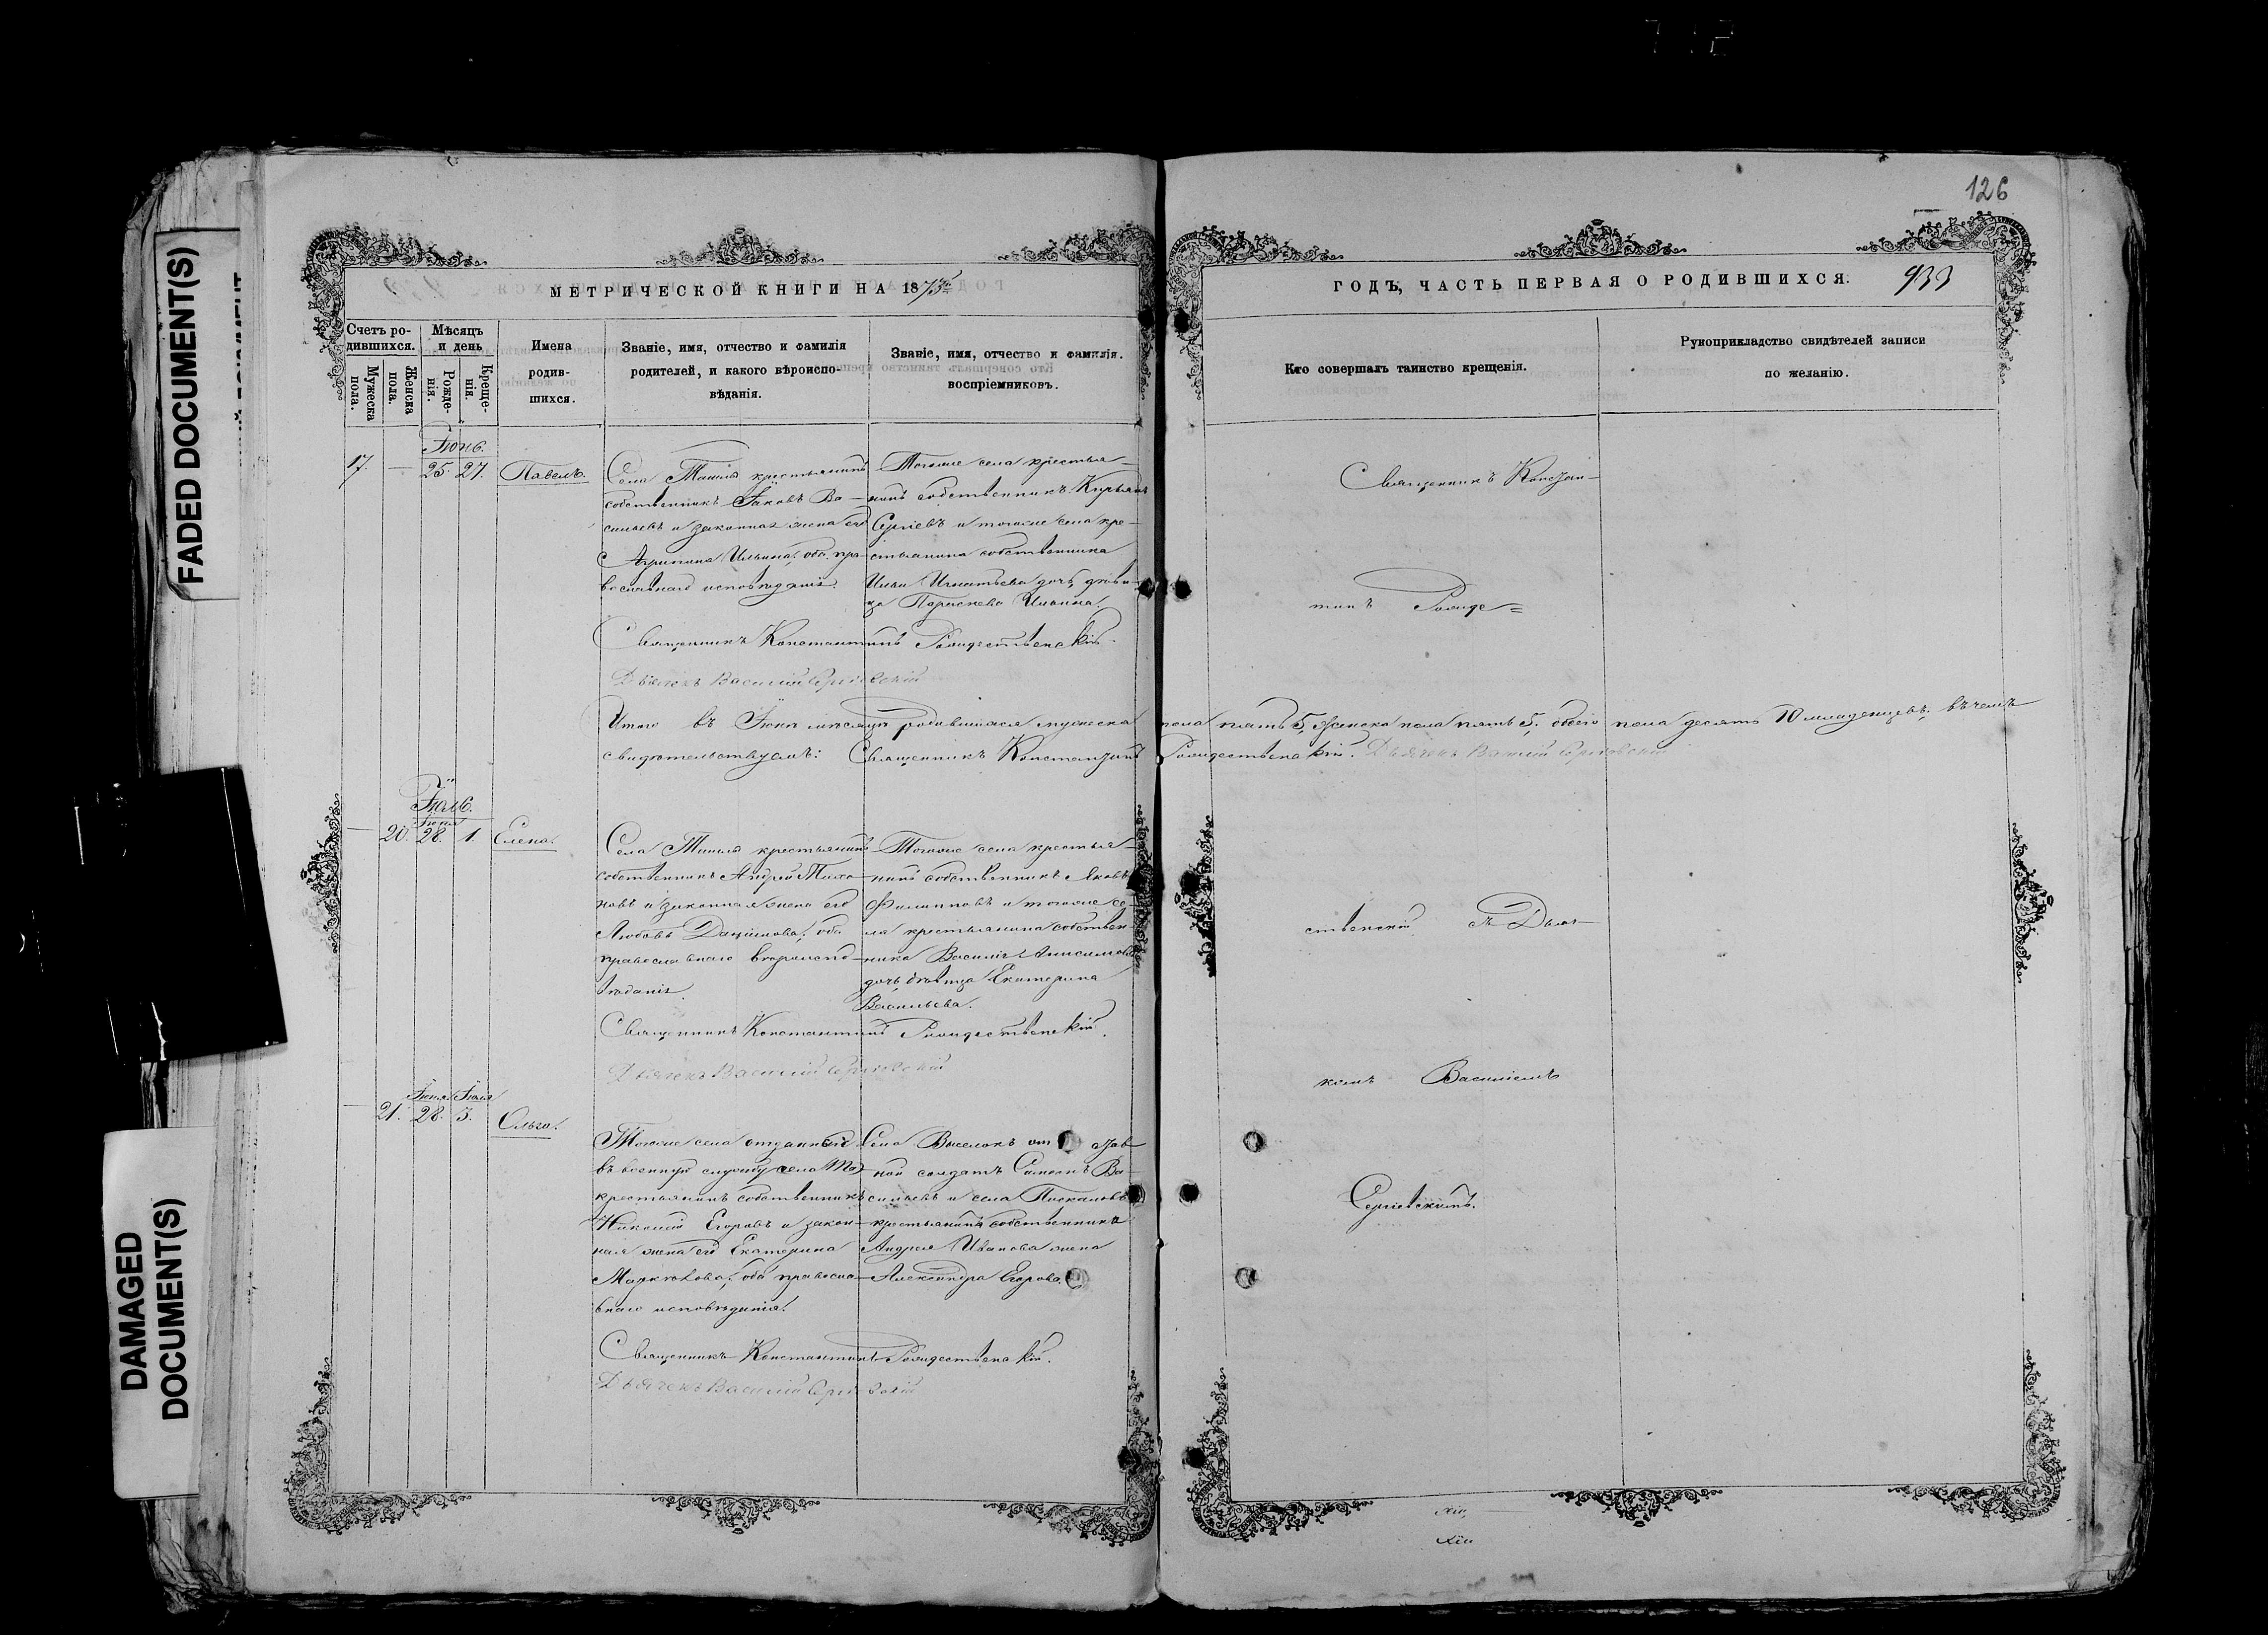 126
МЕТРИЧЕСКОЙ КНИГИ НА 1873
ГОДЪ, ЧАСТЬ ПЕРВАЯ О РОДИВШИХСЯ.
933
Счетъ ро-
дившихся.
Мужеска
пола.
Женска
пола.
Мѣсяцъ
и день
Рожде-
нія.
Креще-
нія.
Имена
родив-
шихся.
Званіе, имя, отчество и фамилія
родителей, и какого вѣроиспо-
вѣданія.
Званіе, имя, отчество и фамилія.
воспріемниковъ.
Кто совершалъ таинство крещенія.
Рукоприкладство свидѣтелей записи
по желанію.
Іюнь.
17. — 25. 27. Павелъ.
Села крестьянинъ
собственникъ Іаковъ Ва-
сильевъ и законная жена его
Агрипина Ильина, оба пра-
вославнаго исповѣданія.
Тогоже села крестья-
нинъ собственникъ
Сергіевъ и тогоже села кре-
стьянина собственника
Ильи Игнатьева дочь дѣви-
ца Параскева Ильина.
Священникъ Константинъ Рождественскій.
Дьячекъ Василій Сергіевскій
Священникъ Констан-
тинъ Рожде=
Итого въ Іюнѣ мѣсяцѣ родившихся мужеска пола пять 5, женска пола пять 5, обоего пола десять 10 младенцевъ, въ чемъ
свидѣтельствуемъ: Священникъ Константинъ Рождественскій. Дьячекъ Василій Сергіевскій
Іюль.
Іюня
— 20. 28. 1. Елена.
Села крестьянинъ
собственникъ Андрей Тихо-
новъ и законная жена его
Любовь Данилова, оба
православнаго вѣроиспо-
вѣданія.
Тогоже села крестья-
нинъ собственникъ Яковъ
Филипповъ и тогоже се-
ла крестьянина собствен-
ника Василія Анисимова
дочь дѣвица Екатерина
Васильева.
Священникъ Константинъ Рождественскій.
Дьячекъ Василій Сергіевскій
ственскій съ Дьяч-
комъ Василіемъ
Іюня Іюля
— 21. 28. 3. Ольга.
Тогоже села отданный
въ военную службу села
крестьянинъ собственникъ
Николай Егоровъ и закон-
ная жена его Екатерина
оба правосла-
внаго исповѣданія.
Села Выселокъ став-
ной солдатъ Симеонъ Ва-
сильевъ и села
крестьянина собственника
Андрея Иванова жена
Александра Егорова.
Сергіевскимъ.
Священникъ Константинъ Рождественскій.
Дьячекъ Василій Сергіевскій
FADED DOCUMENT(S)
DAMAGED
DOCUMENT(S)